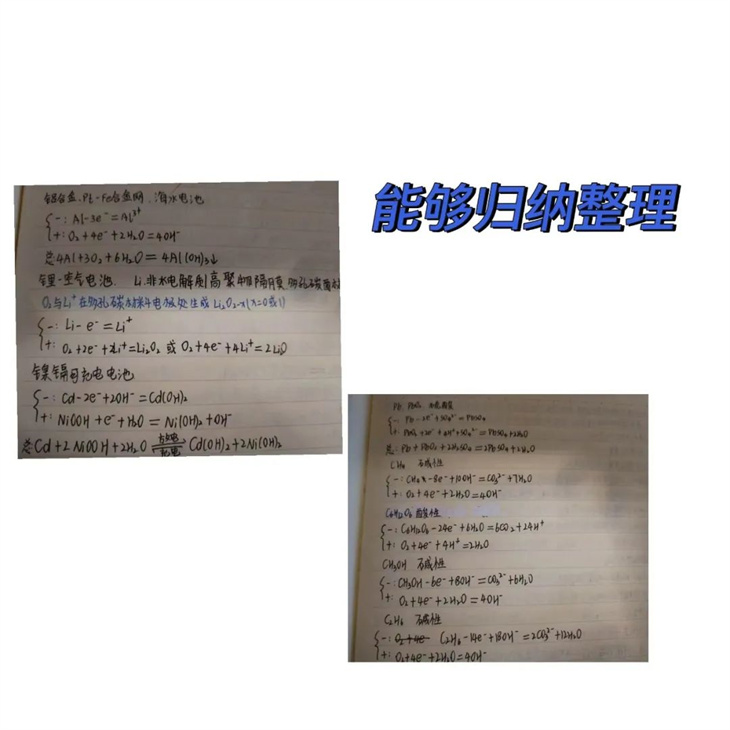 能够归纳整理
铝合金、Pt-Fe合金网、海水电池
-: Al-3e⁻=Al³⁺
+: O₂+4e⁻+2H₂O=4OH⁻
总4Al+3O₂+6H₂O=4Al(OH)₃↓
锂-空气电池. Li 非水电解质 高聚物隔膜 多孔碳
O₂与Li⁺在多孔碳材料电极处生成Li₂O₂₋ₓ(x=0或1)
-: Li-e⁻=Li⁺
+: O₂+2e⁻+2Li⁺=Li₂O₂ 或 O₂+4e⁻+4Li⁺=2Li₂O
镍镉可充电电池
-: Cd-2e⁻+2OH⁻=Cd(OH)₂
+: NiOOH+e⁻+H₂O=Ni(OH)₂+OH⁻
总Cd+2NiOOH+2H₂O 放电 充电 Cd(OH)₂+2Ni(OH)₂
Pb PbO₂
-: Pb-2e⁻+SO₄²⁻=PbSO₄
+: PbO₂+2e⁻+4H⁺+SO₄²⁻=PbSO₄+2H₂O
总: Pb+PbO₂+2H₂SO₄=2PbSO₄+2H₂O
CH₄ 碱性
-: CH₄-8e⁻+10OH⁻=CO₃²⁻+7H₂O
+: O₂+4e⁻+2H₂O=4OH⁻
C₆H₁₂O₆ 酸性
-: C₆H₁₂O₆-24e⁻+6H₂O=6CO₂+24H⁺
+: O₂+4e⁻+4H⁺=2H₂O
CH₃OH 碱性
-: CH₃OH-6e⁻+8OH⁻=CO₃²⁻+6H₂O
+: O₂+4e⁻+2H₂O=4OH⁻
C₂H₆ 碱性
-: O₂+4e⁻ C₂H₆-14e⁻+18OH⁻=2CO₃²⁻+12H₂O
+: O₂+4e⁻+2H₂O=4OH⁻